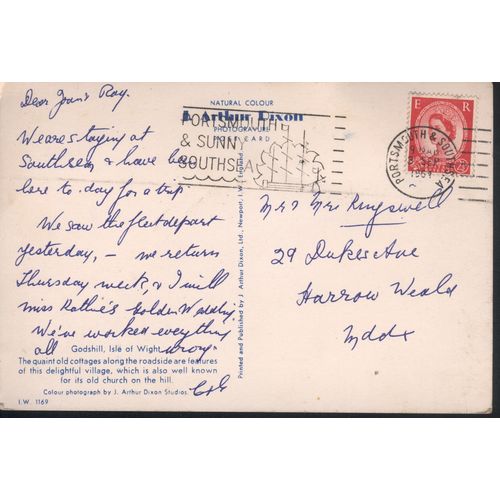 Dear Joan & Ray.
We are staying at
Southsea & have been
here to-day for a trip
We saw the fleet depart
yesterday, – we return
Thursday week, & I will
miss Golden Wedding
We've worked everything
all wrong.
Godshill, Isle of Wight
The quaint old cottages along the roadside are features
of this delightful village, which is also well known
for its old church on the hill.
Colour photograph by J. Arthur Dixon Studios.
I.W. 1169
NATURAL COLOUR
J. Arthur Dixon
PHOTOGRAVURE
POST CARD
PORTSMOUTH
& SUNNY
SOUTHSEA
Printed and Published by J. Arthur Dixon, Ltd., Newport, I.W., England
E R
PORTSMOUTH & SOUTHSEA
SEP
Mr & Mrs Ringswell
29 Dukes Ave
Harrow Weald
Mddx